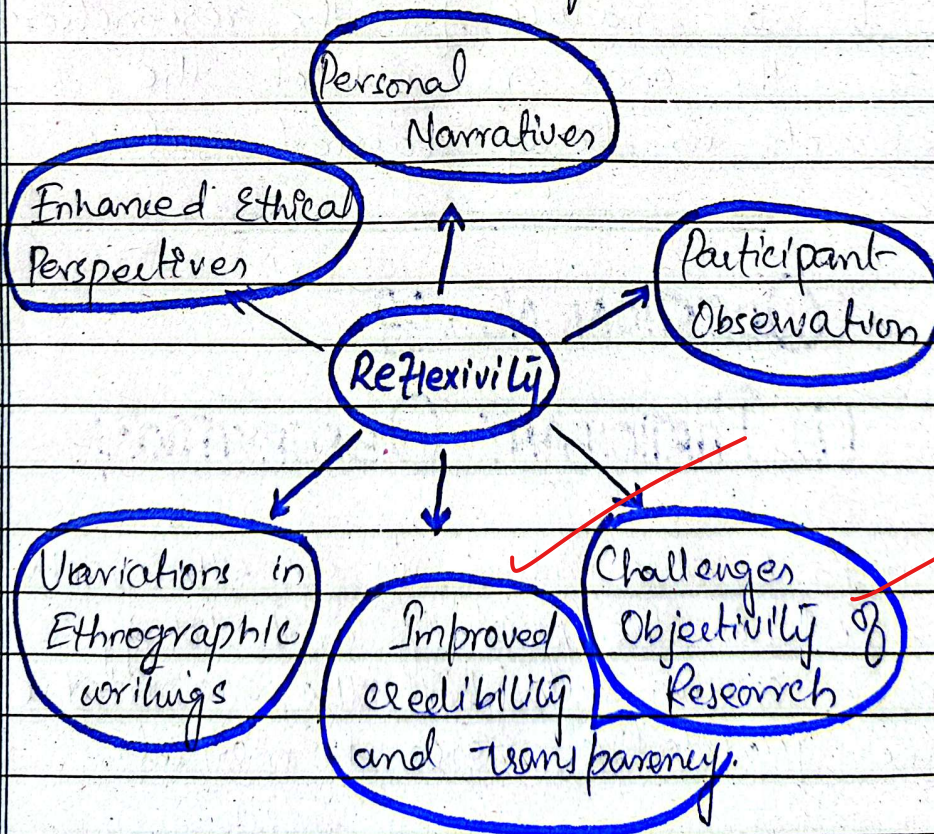 Personal
Narratives
Enhanced Ethical
Perspectives
Participant
Observation
Reflexivity
Variations in
Ethnographic
writings
Improved
credibility
and transparency.
Challenges
Objectivity of
Research